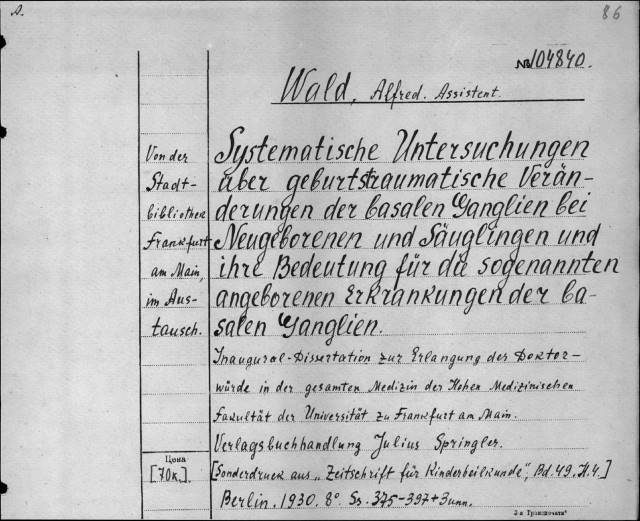 A.
86
№104840.
Wald, Alfred. Assistent.
Von der
Stadt-
bibliothek
Frankfurt
am Main,
im Aus-
tausch.
Systematische Untersuchungen
über geburtstraumatische Verän-
derungen der basalen Ganglien bei
Neugeborenen und Säuglingen und
ihre Bedeutung für die sogenannten
angeborenen Erkrankungen der ba-
salen Ganglien.
Inaugural-Dissertation zur Erlangung der Doktor-
würde in der gesamten Medizin der Hohen Medizinischen
Fakultät der Universität zu Frankfurt am Main.
Verlagsbuchhandlung Julius Springler.
[Sonderdruck aus „Zeitschrift für Kinderheilkunde", Bd. 49, H. 4.]
Berlin. 1930. 8°. Ss. 375-397+3 unn.
Цена
[70к.].
3-я Транспечати"